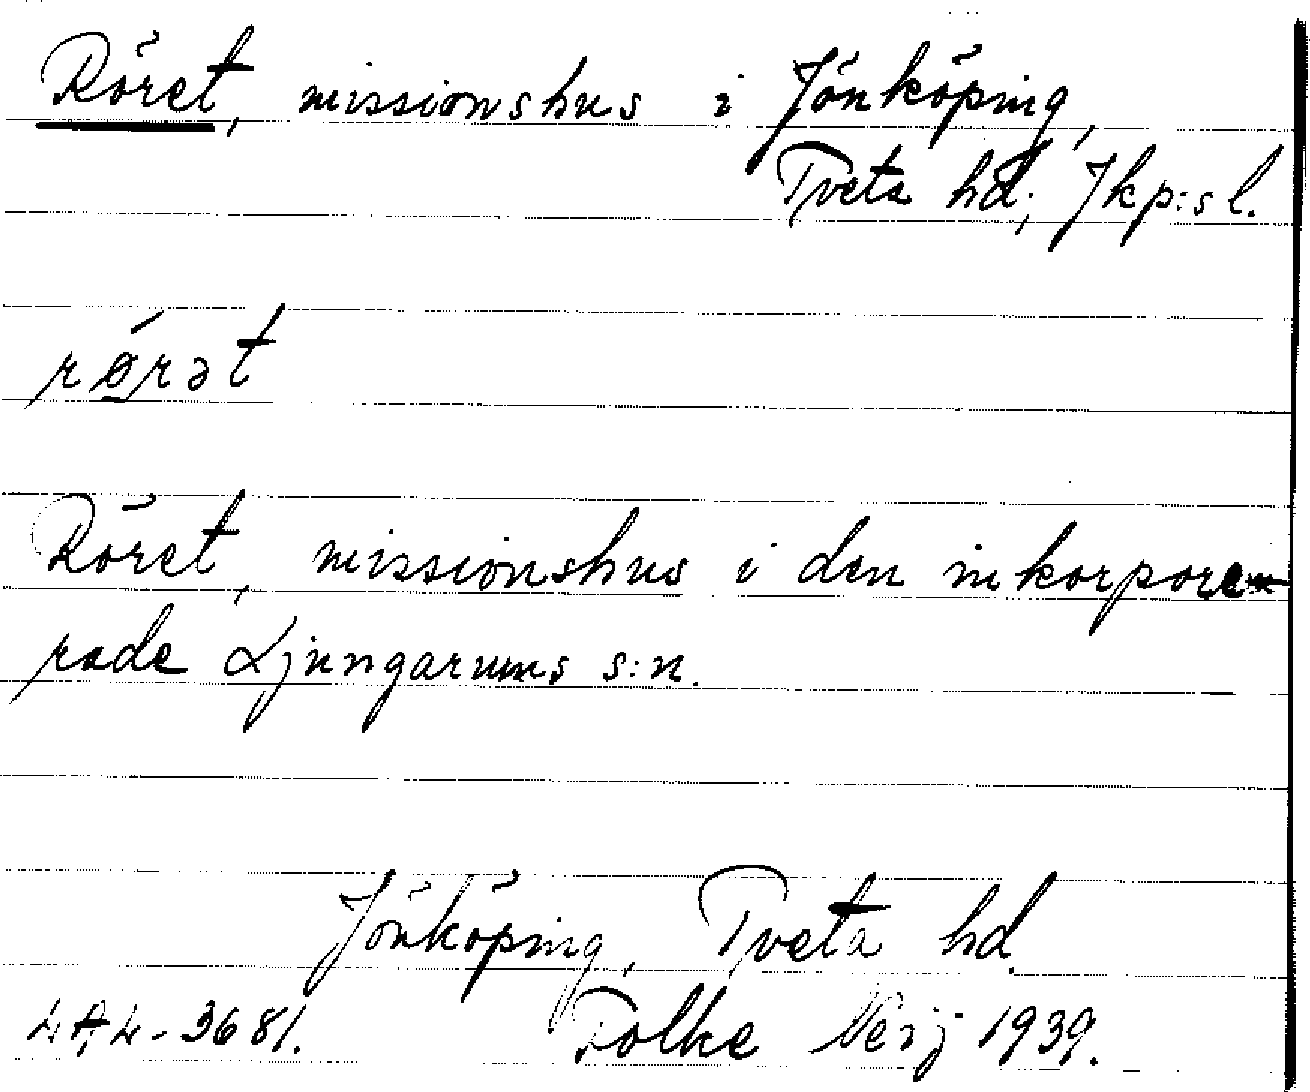 Röret, missionshus i Jönköping,
Tveta hd; Jkp:s l.
rǿrət
Röret, missionshus i den inkorpore-
rade Ljungarums s:n.
Jönköping, Tveta hd.
Folke 1939.